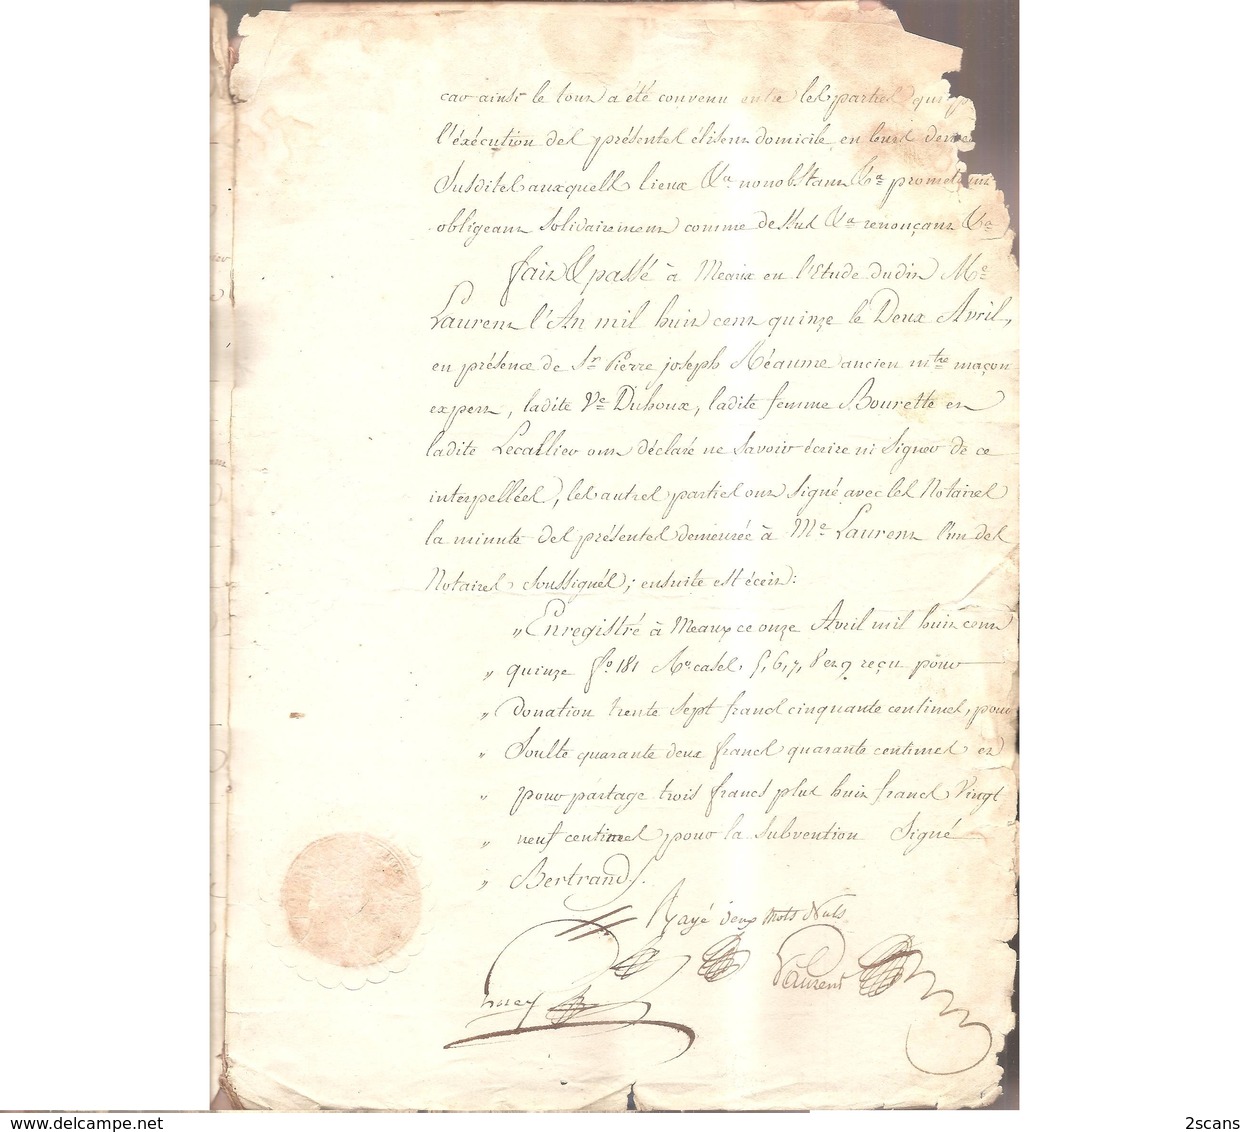 car ainsi le tout a été convenu entre les parties qui p
l'éxécution des présentes élisent domicile en leurs deme
Susdites auxquells lieux &a nonobstant &a promettant
obligeant solidairement comme dessus &a renonçant &a
fait & passé à Meaux en l'Etude dudit Me
Laurent l'An mil huit cent quinze le Deux Avril,
en présence de Sr Pierre joseph Réaume ancien mtre maçon
expert, ladite Ve Duhoux, ladite femme Bourette et
ladite Lecallier ont déclaré ne savoir écrire ni Signer de ce
interpellées, les autres parties ont signé avec les Notaires
la minute des présentes demeurée à Me Laurent l'un des
Notaires soussignés; ensuite est écrit:
" Enregistré à Meaux ce onze Avril mil huit cent
" quinze fo 181 Ro cases 5, 6, 7, 8 et 9 reçu pour
" donation trente sept francs cinquante centimes, pour
" Soulte quarante deux francs quarante centimes et
" pour partage trois francs plus huit francs Vingt
" neuf centimes pour la subvention Signé
" Bertrand.
Rayé deux mots Nuls
Laurent
delcampe.net
2scans